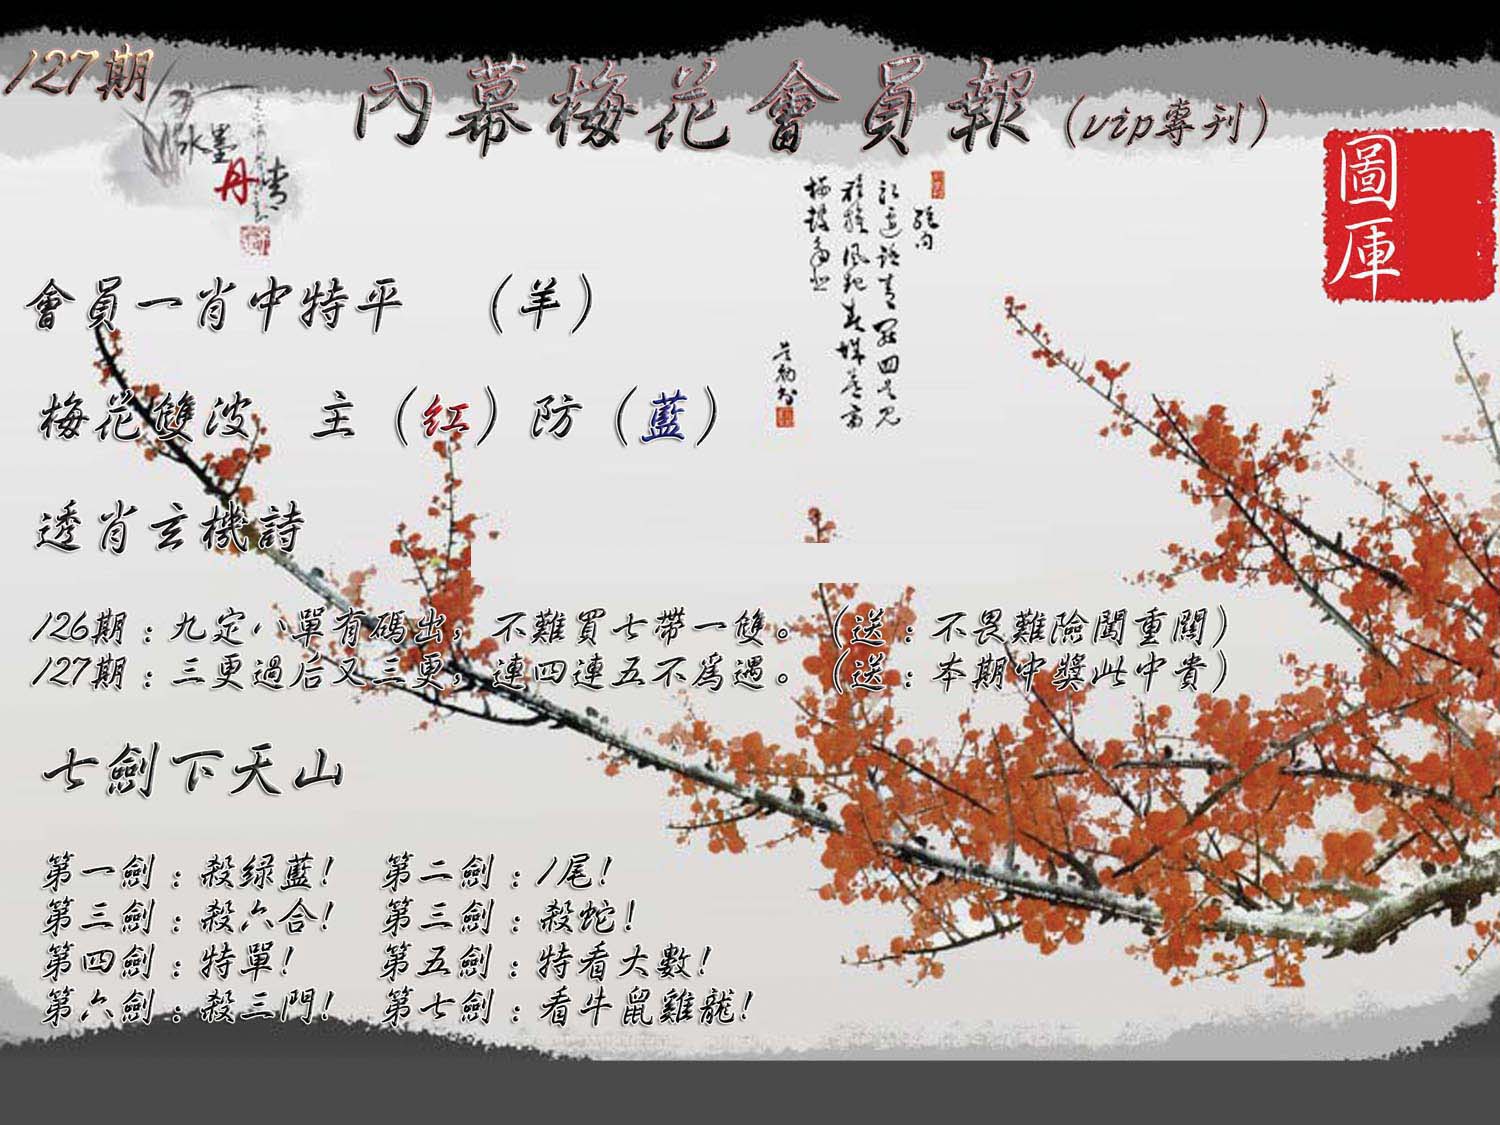 127期
內幕梅花會員報(vip專刊)
水墨
丹青
圖庫
會員一肖中特平 (羊)
梅花雙波 主(紅)防(藍)
透肖玄機詩
126期:九定八單有碼出,不難買七帶一雙。(送:不畏難險闖重關)
127期:三更過后又三更,連四連五不為過。(送:本期中獎此中貴)
七劍下天山
第一劍:殺绿藍! 第二劍:1尾!
第三劍:殺六合! 第三劍:殺蛇!
第四劍:特單! 第五劍:特看大數!
第六劍:殺三門! 第七劍:看牛鼠雞龍!